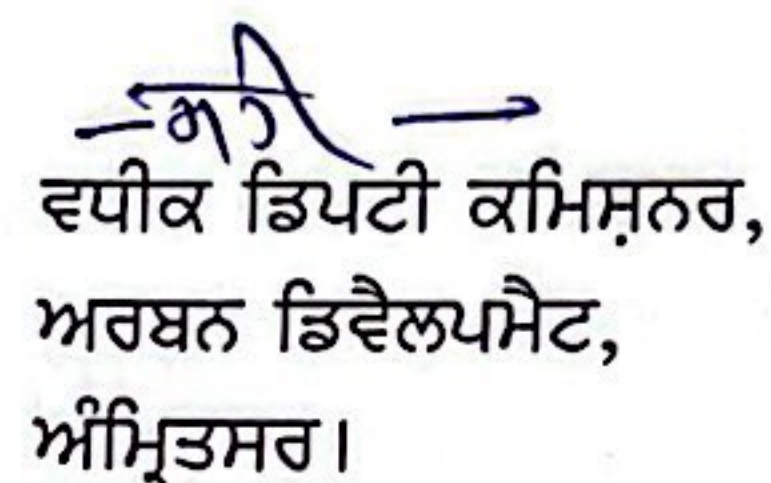 ਸਹੀ
ਵਧੀਕ ਡਿਪਟੀ ਕਮਿਸ਼ਨਰ,
ਅਰਬਨ ਡਿਵੈਲਪਮੈਟ,
ਅੰਮ੍ਰਿਤਸਰ।